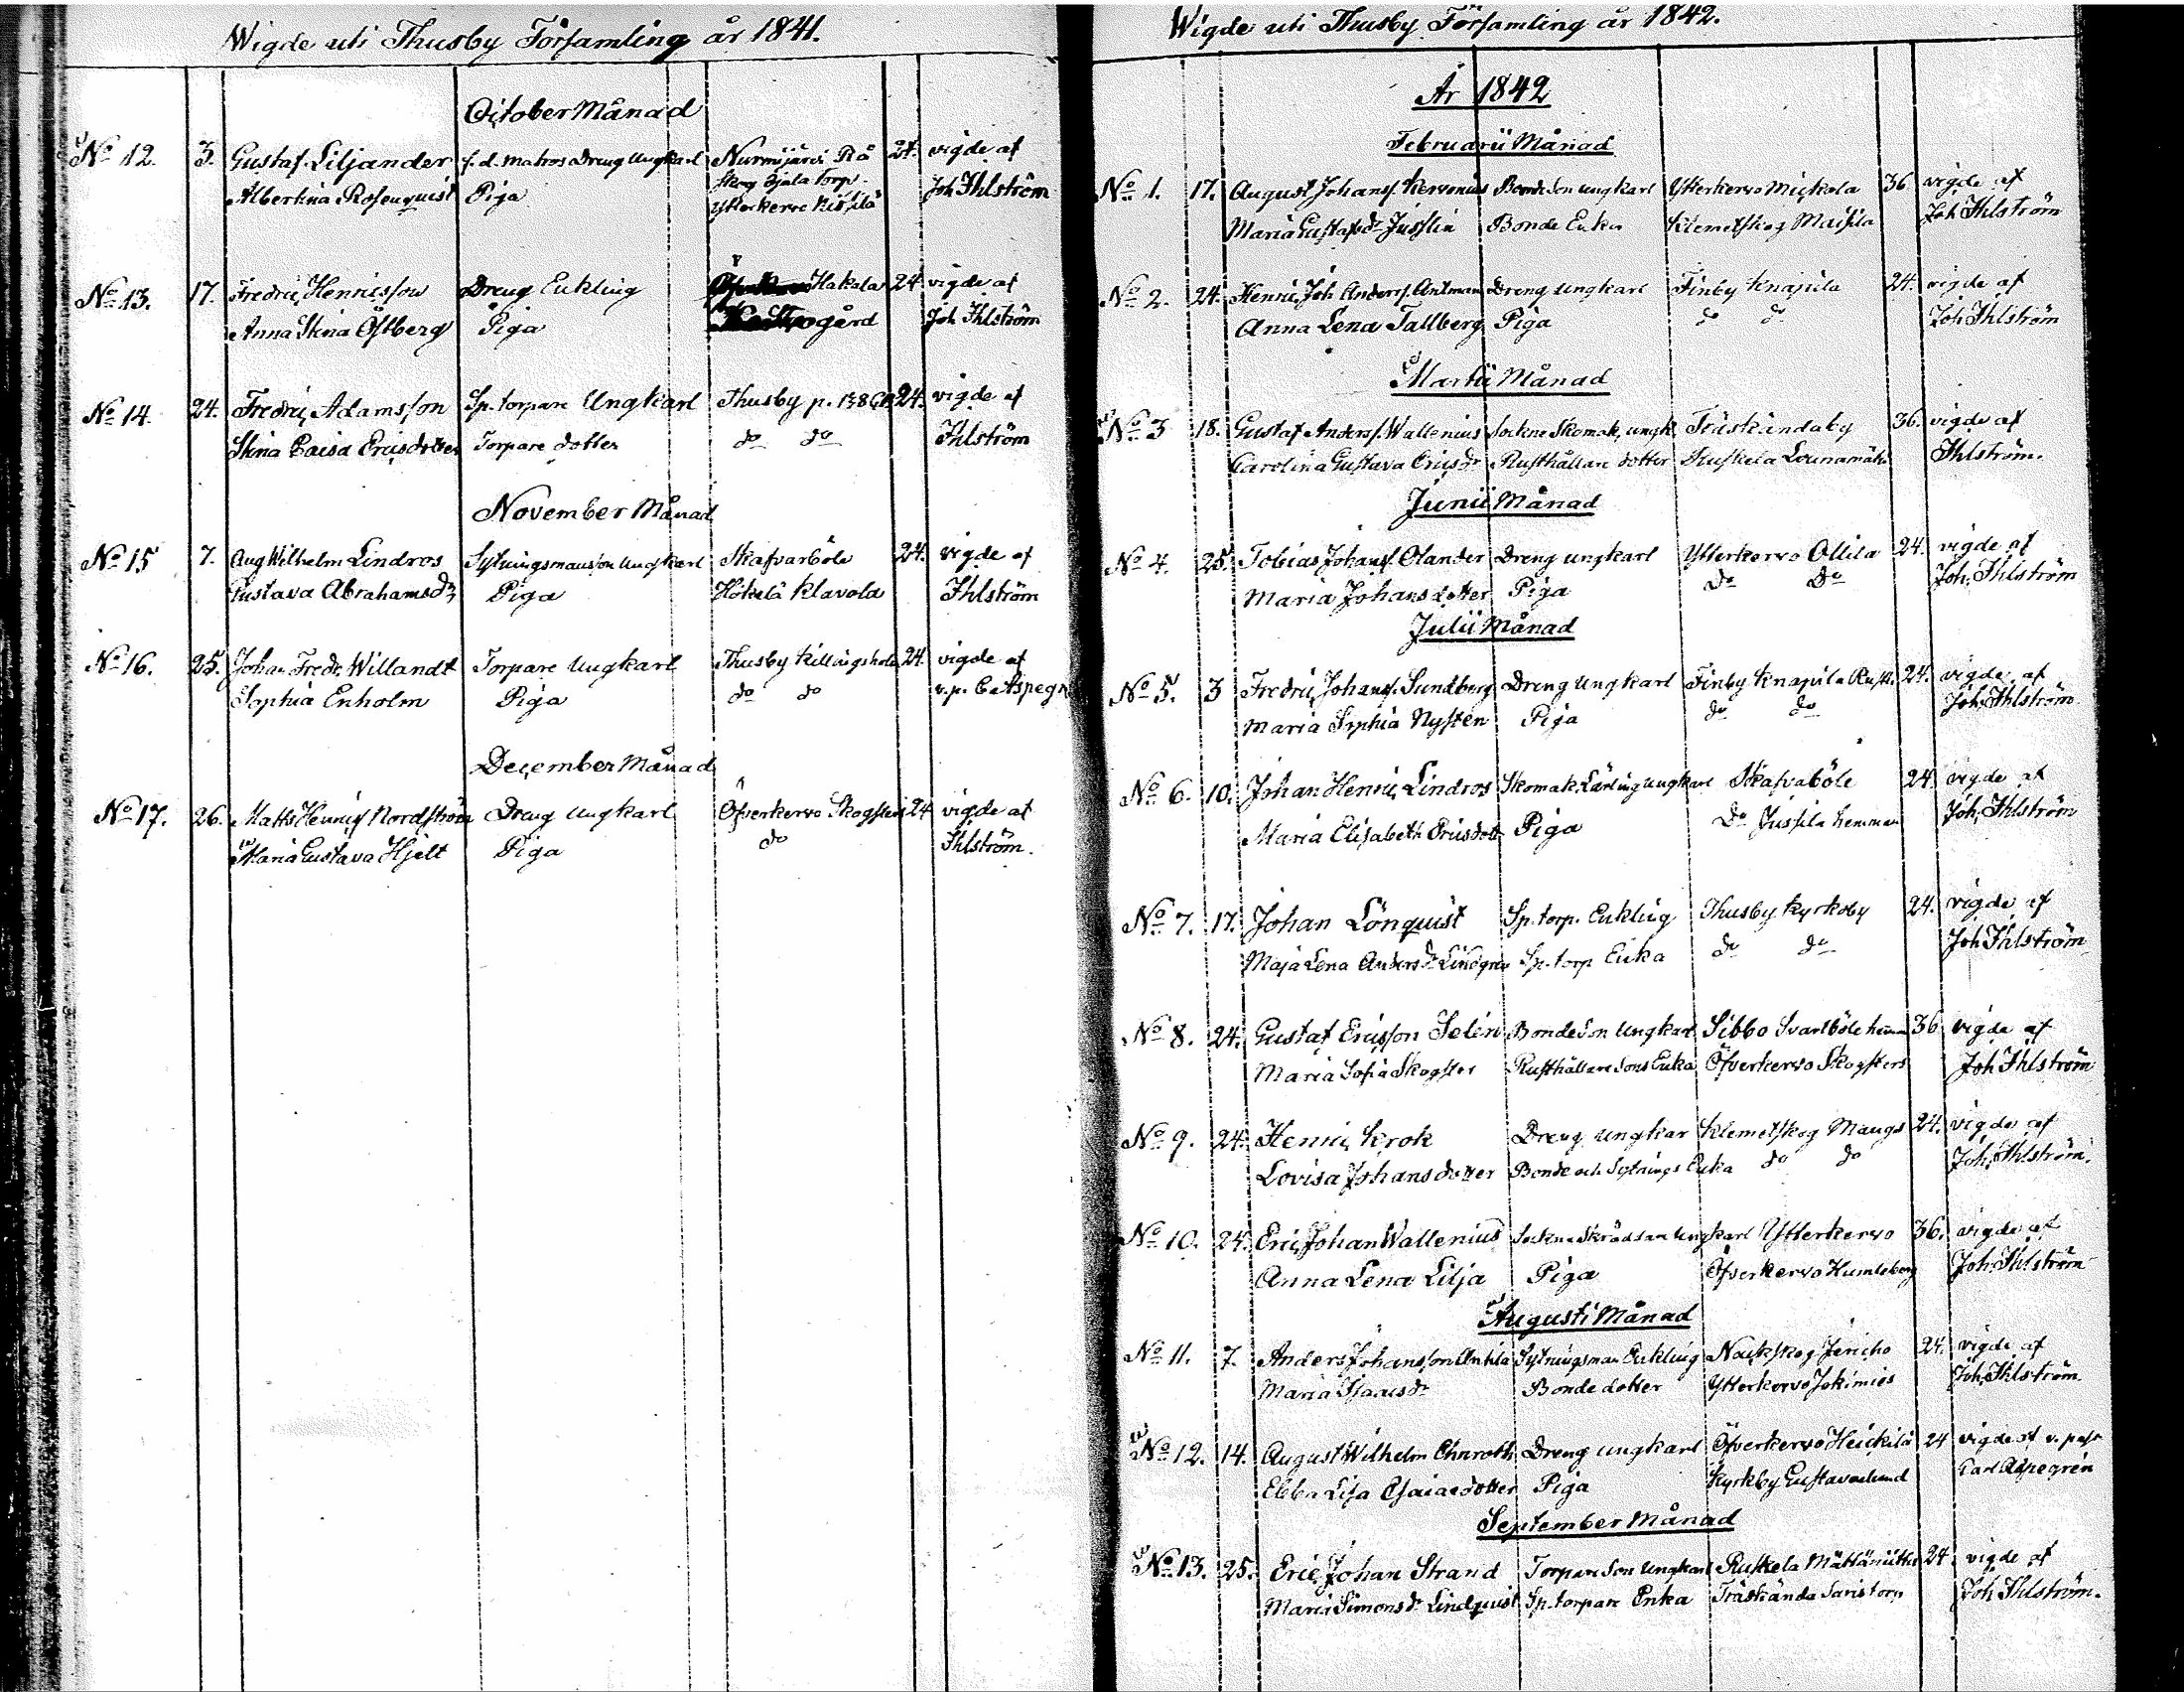 Wigde uti Thusby Församling år 1841.
October Månad
No 12. 3. Gustaf Liljander f.d. Matros Dreng Ungkarl Nurmijärvi Rå 24. vigde af
Albertina Rosenquist Piga Skog torp Joh Ihlström
Ytterkervo
No 13. 17. Fredric Henricsson Dreng Enkling Hakala 24. vigde af
Anna Stina Östberg Piga gård Joh Ihlström
No 14. 24. Fredric Adamsson Sp. torpare Ungkarl Thusby p. 24. vigde af
Stina Caisa Ericsdotter Torpare dotter do do Ihlström
November Månad
No 15 7. Aug Wilhelm Lindros Sytningsmanson Ungkarl Skafvarböle 24. vigde af
Gustava Abrahamsdr Piga Hökelä Klavola Ihlström
No 16. 25. Johan Fredr. Willandt Torpare Ungkarl Thusby Killingsholm 24. vigde af
Sophia Enholm Piga do do v.p. C. Aspegr
December Månad
No 17. 26. Matts Henricss Nordström Dreng Ungkarl Öfverkervo Skogster 24 vigde af
Maria Gustava Hjelt Piga do Ihlström.
Wigde uti Thusby Församling år 1842.
År 1842
Februarii Månad
No 1. 17. August Johanss. Kervenius Bonde Son ungkarl Ytterkervo Mickola 36 vigde af
Maria Gustafsdr Jusslin Bonde Enka Klemetskog Maisila Joh Ihlström
No 2. 24. Henric Joh Anderss. Antman Dreng ungkarl Finby Knapila 24. vigde af
Anna Lena Tallberg Piga do do Joh Ihlström
Martii Månad
No 3 18. Gustaf Anderss. Wallenius Sockne Skomak. ungk. Träskändaby 36. vigde af
Carolina Gustava Ericsdr Rusthållare dotter Ruskela Lounamäki Ihlström.
Junii Månad
No 4. 25. Tobias Johanss. Olander Dreng ungkarl Ytterkervo Ollila 24. vigde af
Maria Johansdotter Piga do do Joh. Ihlström
Julii Månad
No 5. 3 Fredric Johanss. Sundberg Dreng Ungkarl Finby Knapila Rust. 24. vigde af
Maria Sophia Nysten Piga do do Joh. Ihlström
No 6. 10. Johan Henric Lindros Skomak. Lärling Ungkarl Skafvaböle 24 vigde af
Maria Elisabeth Ericsdott Piga do Jussila hemman Joh. Ihlström
No 7. 17. Johan Lönquist Sp. torp. Enkling Thusby Kyrkoby 24. vigde af
Maja Lena Andersdr Lindgren Sp. torp Enka do do Joh Ihlström
No 8. 24. Gustaf Ericsson Selen Bonde Son Ungkarl Sibbo Svartböle hemm 36 vigde af
Maria Sofia Skogster Rusthållare Sons Enka Öfverkervo Skogsters Joh Ihlström
No 9. 24. Henric Krok Dreng Ungkar Klemetskog Maugs 24. vigde af
Lovisa Johansdotter Bonde och Sytnings Enka do do Joh. Ihlström.
No 10. 24. Eric Johan Wallenius Sockne Skräddare Ungkarl Ytterkervo 36. vigde af
Anna Lena Lilja Piga Öfverkervo Humleberg Joh. Ihlström
Augusti Månad
No 11. 7. Anders Johansson Anttila Sytningsman Enkling Nackskog Jericho 24. vigde af
Maria Isaacsdr Bonde dotter Ytterkervo Jokimies Joh. Ihlström
No 12. 14. August Wilhelm Ehnroth Dreng ungkarl Öfverkervo Heickilä 24 vigde af v. past
Ebba Lisa Esaiaedotter Piga Kyrkby Gustavelund Carl Aspegrén
September Månad
No 13. 25. Eric Johan Strand Torpare Son Ungkarl Ruskela 24. vigde af
Maria Simonsdr Lindquist Sp. torpare Enka Träskända Saris torp Joh Ihlström.